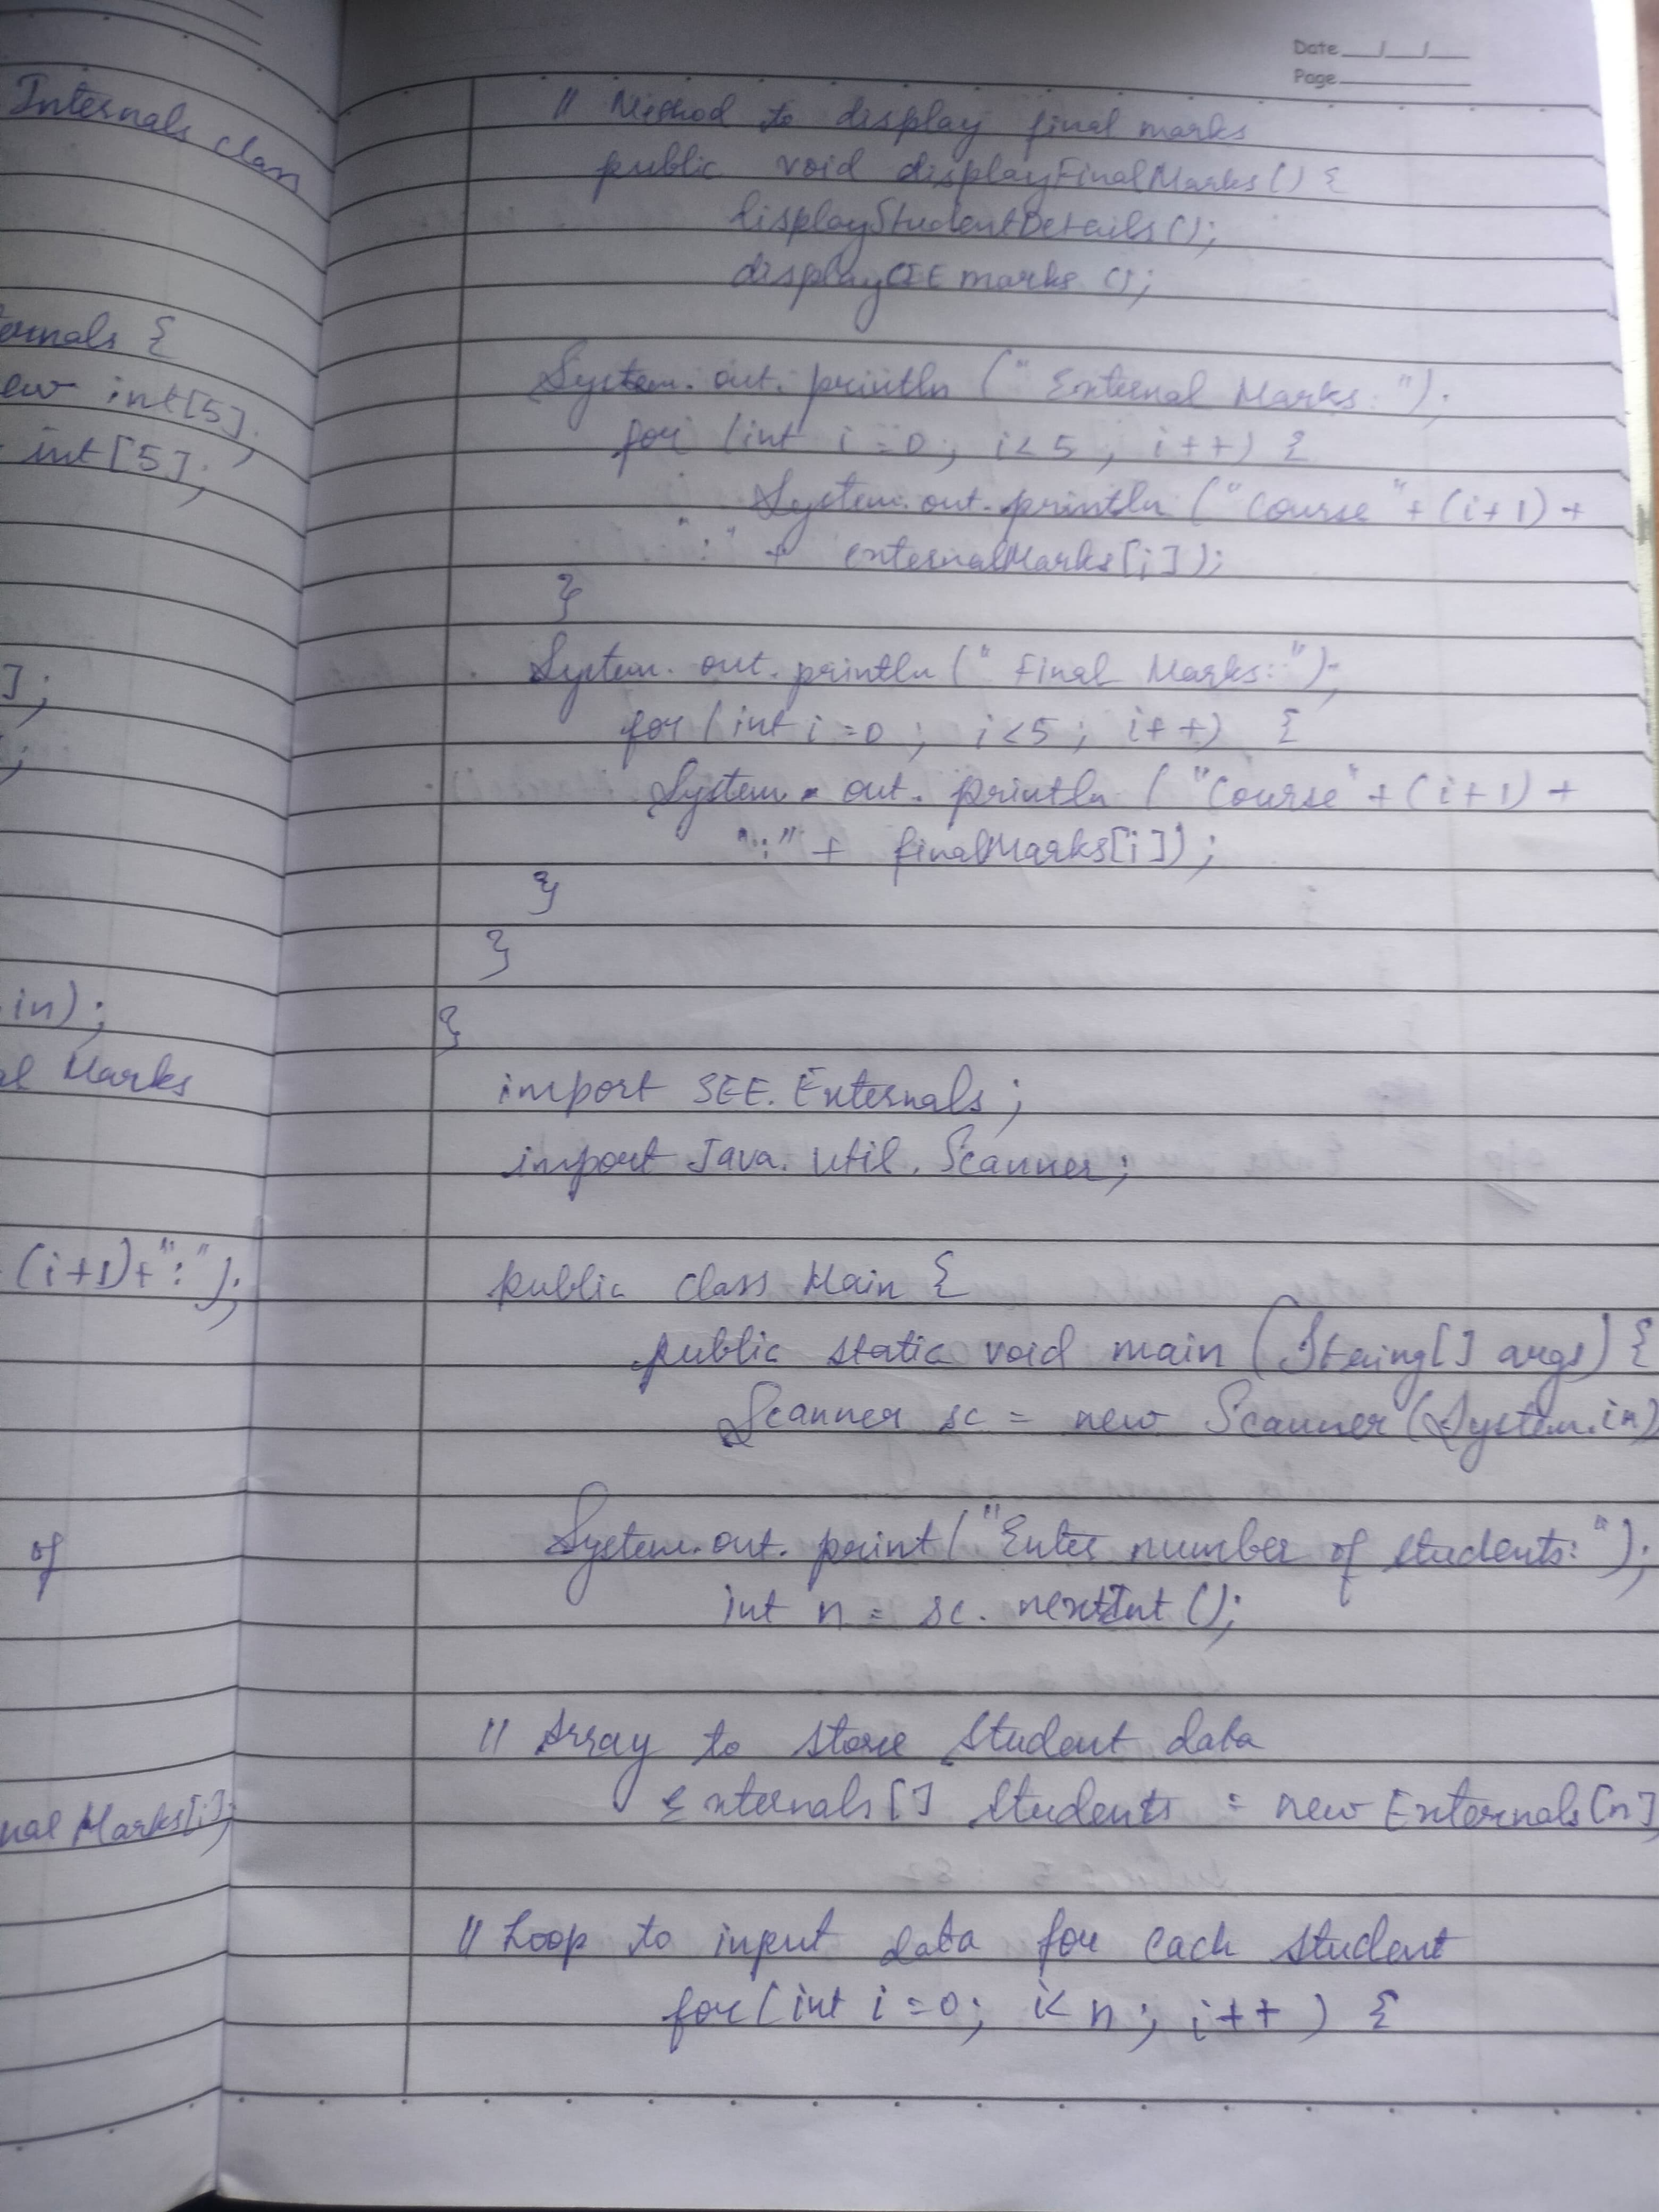 Internals class
ernals {
ew int[5];
int[5];
];
;
in);
al Marks
(i+1)+":");
of
nal Marks[i];
Date __/__/__
Page
// Method to display final marks
public void displayFinalMarks() {
displayStudentDetails();
displayCIE marks ();
System.out.println (" External Marks: ");
for (int i = 0; i < 5; i++) {
System.out.println ("Course "+(i+1)+
":" + externalMarks[i]);
}
System.out.println (" Final Marks:");
for (int i = 0; i < 5; i++) {
System.out.println ("Course"+(i+1)+
":" + finalMarks[i]);
}
}
}
import SEE.Externals;
import Java.util.Scanner;
public class Main {
public static void main (String[] args) {
Scanner sc = new Scanner (System.in)
System.out.print("Enter number of students: ");
int n = sc.nextInt();
// Array to store student data
Externals[] students = new Externals[n]
// Loop to input data for each student
for(int i = 0; i < n; i++) {